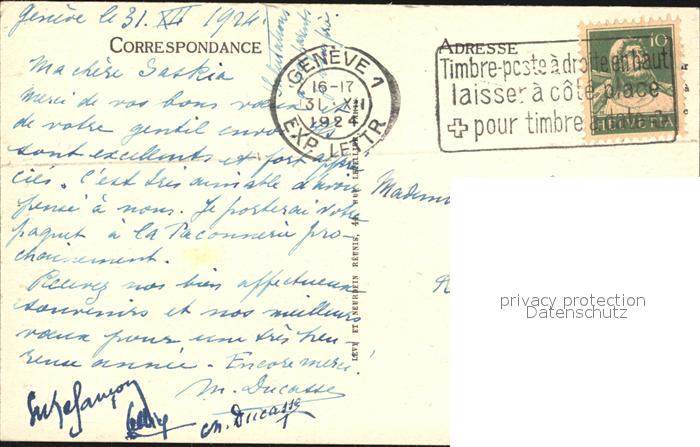 Genève le 31. XII 1924.
CORRESPONDANCE
ADRESSE
Ma chère Saskia
Merci de vos bons vœux et
de votre gentil envoi. Ils
sont excellents et fort appré-
ciés. C'est très aimable d'avoir
pensé à nous. Je porterai votre
paquet à la Taconnerie pro-
chainement.
Recevez nos bien affectueux
souvenirs et nos meilleurs
vœux pour une très heu-
reuse année. Encore merci!
M. Ducasse
ch. Ducasse
GENÈVE 1
16-17
31. XII
1924
EXP. LETTR.
Timbre-poste à droite en haut
laisser à côté place
pour timbre
10
LEVY ET NEURDEIN RÉUNIS, 44, RUE LETELLIER
Mademo
privacy protection
Datenschutz